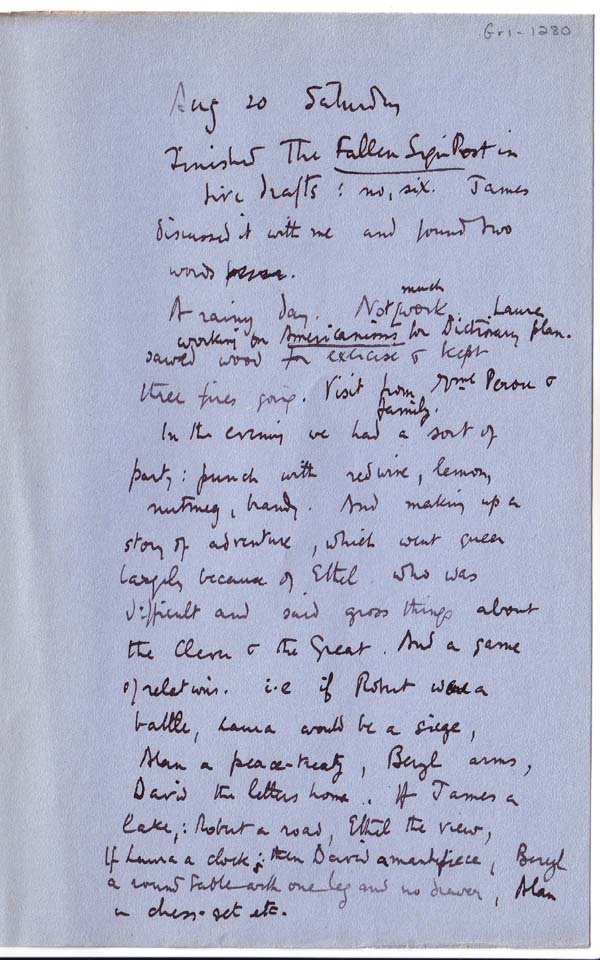 Gr1-1280
Aug 20 Saturday
Finished The Fallen SignPost in
five drafts: no, six. James
discussed it with me and found two
words
A rainy day. Not much work. Laura
working on Americanisms for Dictionary plan.
sawed wood for exercise & kept
three fires going. Visit from Mme Perou &
family.
In the evening we had a sort of
party: punch with red wine, lemon,
nutmeg, brandy. And making up a
story of adventure, which went queer
largely because of Ethel who was
difficult and said gross things about
the Clever & the Great. And a game
of relations. i.e if Robert were a
battle, Laura would be a siege,
Alan a peace-treaty, Beryl arms,
David the letters home. If James a
lake,: Robert a road, Ethel the view,
If Laura a clock; then David a mantelpiece, Beryl
a round table with one leg and no drawer, Alan
a chess-set etc.